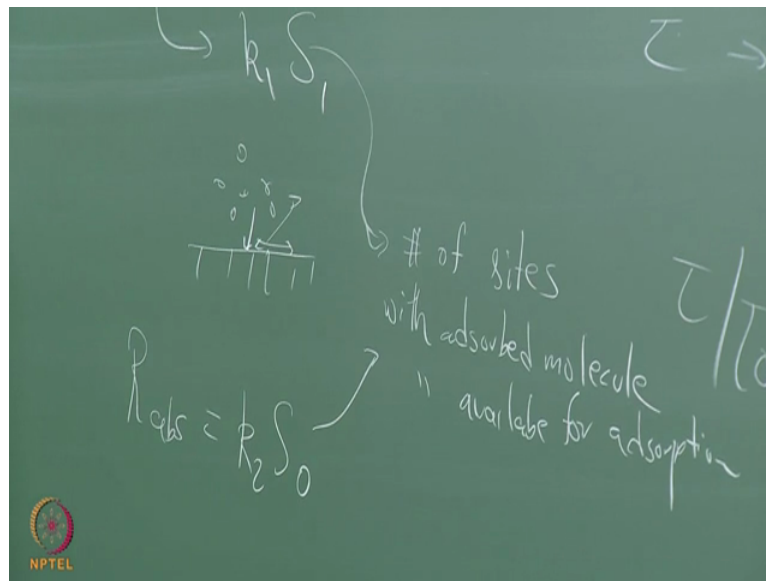 k₁ S₁
τ →
# of sites
with adsorbed molecule
" availabe for adsorption
τ/τ
R abs = k₂ S₀
NPTEL